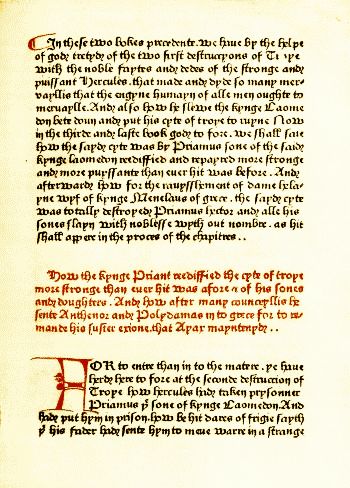 In these two bokes precedente. we haue by the helpe
of god tretyd of the two first destruccyons of Troye
with the noble faytes and dedes of the stronge and
puissant Hercules. that made and dyde so many mer-
vayllis that the engyne humayn of alle men ought to
mervaylle. And also how he slewe the kynge Laome
don bete doun and put his cyte of troye to ruyne Now
in the thirde and laste book god to fore. we shall saie
how the sayd cyte was by Priamus sone of the said
kynge laomedon reediffied and repayred more stronge
and more puyssante than euer hit was before. And
afterward how for the rauysshement of dame hela-
yne wyf of kynge Menelaus of grece. the sayd cyte
was totally destroyed Priamus hector and alle his
sones slayn with noblesse wyth out nombre. as hit
shall appere in the proces of the chapitres..
How the kynge Priant reediffied the cyte of troye
more stronge than euer hit was afore & of his sones
and doughtres. And how after many counceyllis he
sente Anthenor and Polydamas in to grece for to re-
mande his suster exione. that Ayax mayntenyd..
FOR to entre than in to the matere. ye haue
herd here to fore at the seconde destruccion of
Troye how hercules had taken prysonner
Priamus þe sone of kynge Laomedon. And
had put hym in prison. how be hit dares of frigie sayth
þt his fader had sente hym to meue warre in a strange